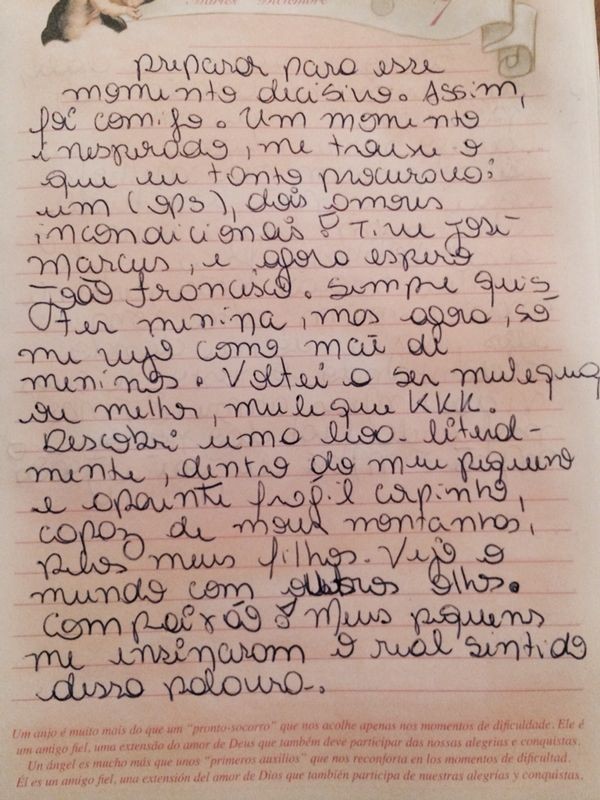 Martes Diciembre 7
preparar para esse
momento decisivo. Assim,
foi comigo. Um momento
inesperado, me trouxe o
que eu tanto procurava:
um (ops), dois amores
incondicionais! Tive José
Marcus, e agora espero
João Francisco. Sempre quis
ter menina, mas agora, só
me vejo como mãe de
meninos. Voltei a ser muleque,
ou melhor, muleque KKK.
Descobri uma leoa. literal-
mente, dentro do meu pequeno
e aparente frágil corpinho,
capaz de mover montanhas,
pelos meus filhos. Vejo o
mundo com outros olhos.
Compaixão! Meus pequenos
me ensinaram o real sentido
dessa palavra.
Um anjo é muito mais do que um "pronto-socorro" que nos acolhe apenas nos momentos de dificuldade. Ele é
um amigo fiel, uma extensão do amor de Deus que também deve participar das nossas alegrias e conquistas.
Un ángel es mucho más que unos "primeros auxilios" que nos reconforta en los momentos de dificultad.
Él es un amigo fiel, una extensión del amor de Dios que también participa de nuestras alegrías y conquistas.